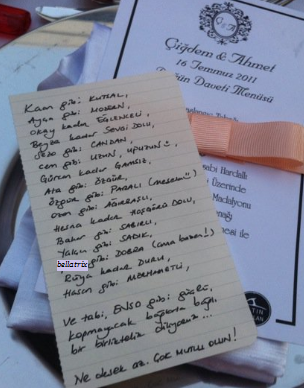 Çiğdem & Ahmet
16 Temmuz 2011
Düğün Daveti Menüsü
Kaan gibi KUTSAL,
Ayça gibi MODERN,
Okay kadar EĞLENCELİ,
Beyza kadar SEVGİ DOLU,
Sezo gibi CANDAN,
Cen gibi UZUN, UPUZUN
Gürcan kadar GAMSIZ,
Ata gibi ÖZGÜR,
Özgür gibi PAHALI (mesela)
Ozan gibi AĞIRBAŞLI,
Hesna kadar HOŞGÖRÜ DOLU,
Bahar gibi SABIRLI,
Yalçın gibi SADIK,
bellatrix gibi DOBRA (ama bazen!)
Rüya kadar DURU,
Hasan gibi MERHAMETLİ,
Ve tabi, ENSO gibi güçlü,
kopmayacak bağlarla bağlı
bir birliktelik diliyoruz...
Ne desek az. ÇOK MUTLU OLUN!
Hardallı
Üzerinde
Madalyonu
ile